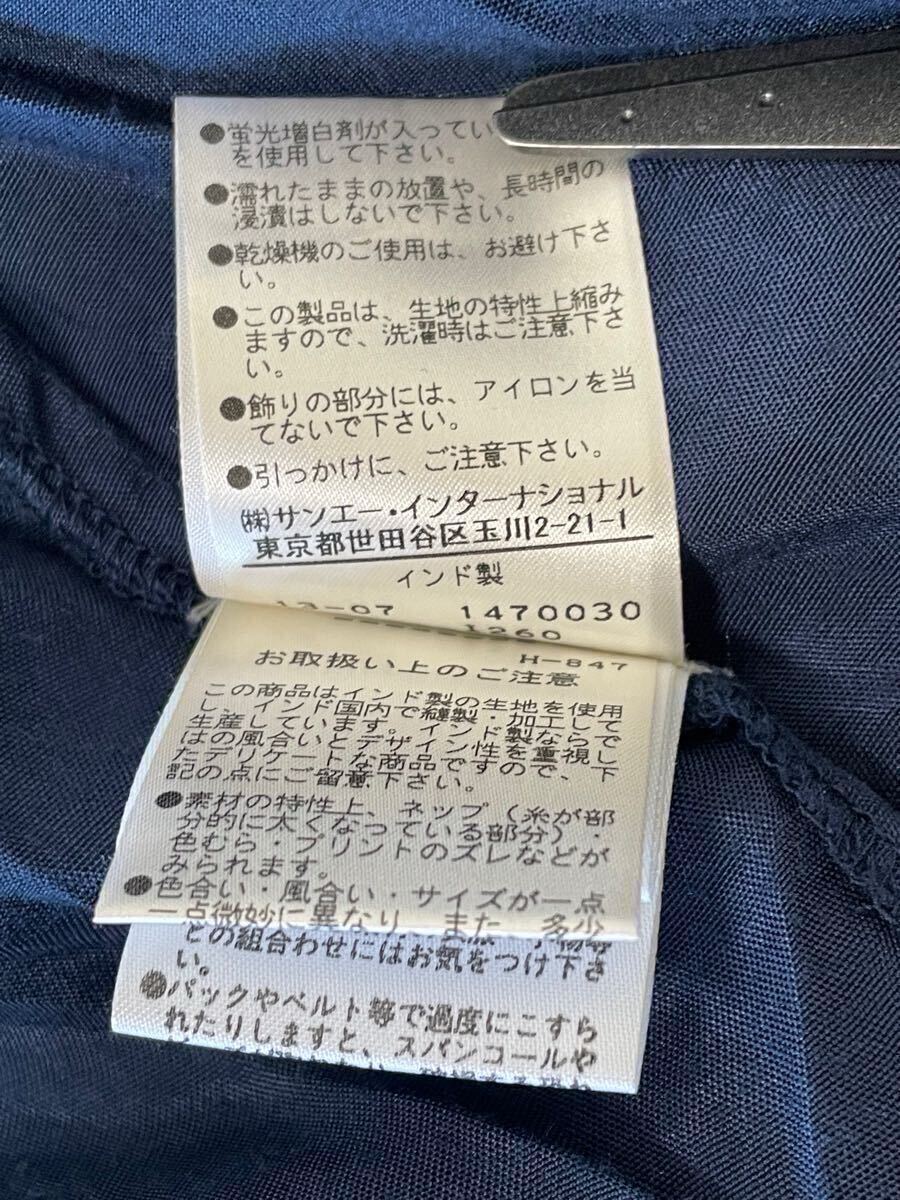 ●蛍光増白剤が入ってい
を使用して下さい。
●濡れたままの放置や、長時間の
浸漬はしないで下さい。
●乾燥機のご使用は、お避け下さ
い。
●この製品は、生地の特性上縮み
ますので、洗濯時はご注意下さ
い。
●飾りの部分には、アイロンを当
てないで下さい。
●引っかけに、ご注意下さい。
㈱サンエー・インターナショナル
東京都世田谷区玉川2-21-1
インド製
13-07 1470030
1260
H-847
お取扱い上のご注意
この商品はインド製の生地を使用
し、インド国内で縫製・加工して
生産しています。インド製ならで
はの風合いとデザイン性を重視し
たデリケートな商品ですので、下
記の点にご留意下さい。
●素材の特性上、ネップ（糸が部
分的に太くなっている部分）・
色むら・プリントのズレなどが
みられます。
●色合い・風合い・サイズが一点
一点微妙に異なり、また、多少
との組合わせにはお気をつけ下さ
い。
●バックやベルト等で過度にこすら
れたりしますと、スパンコールや